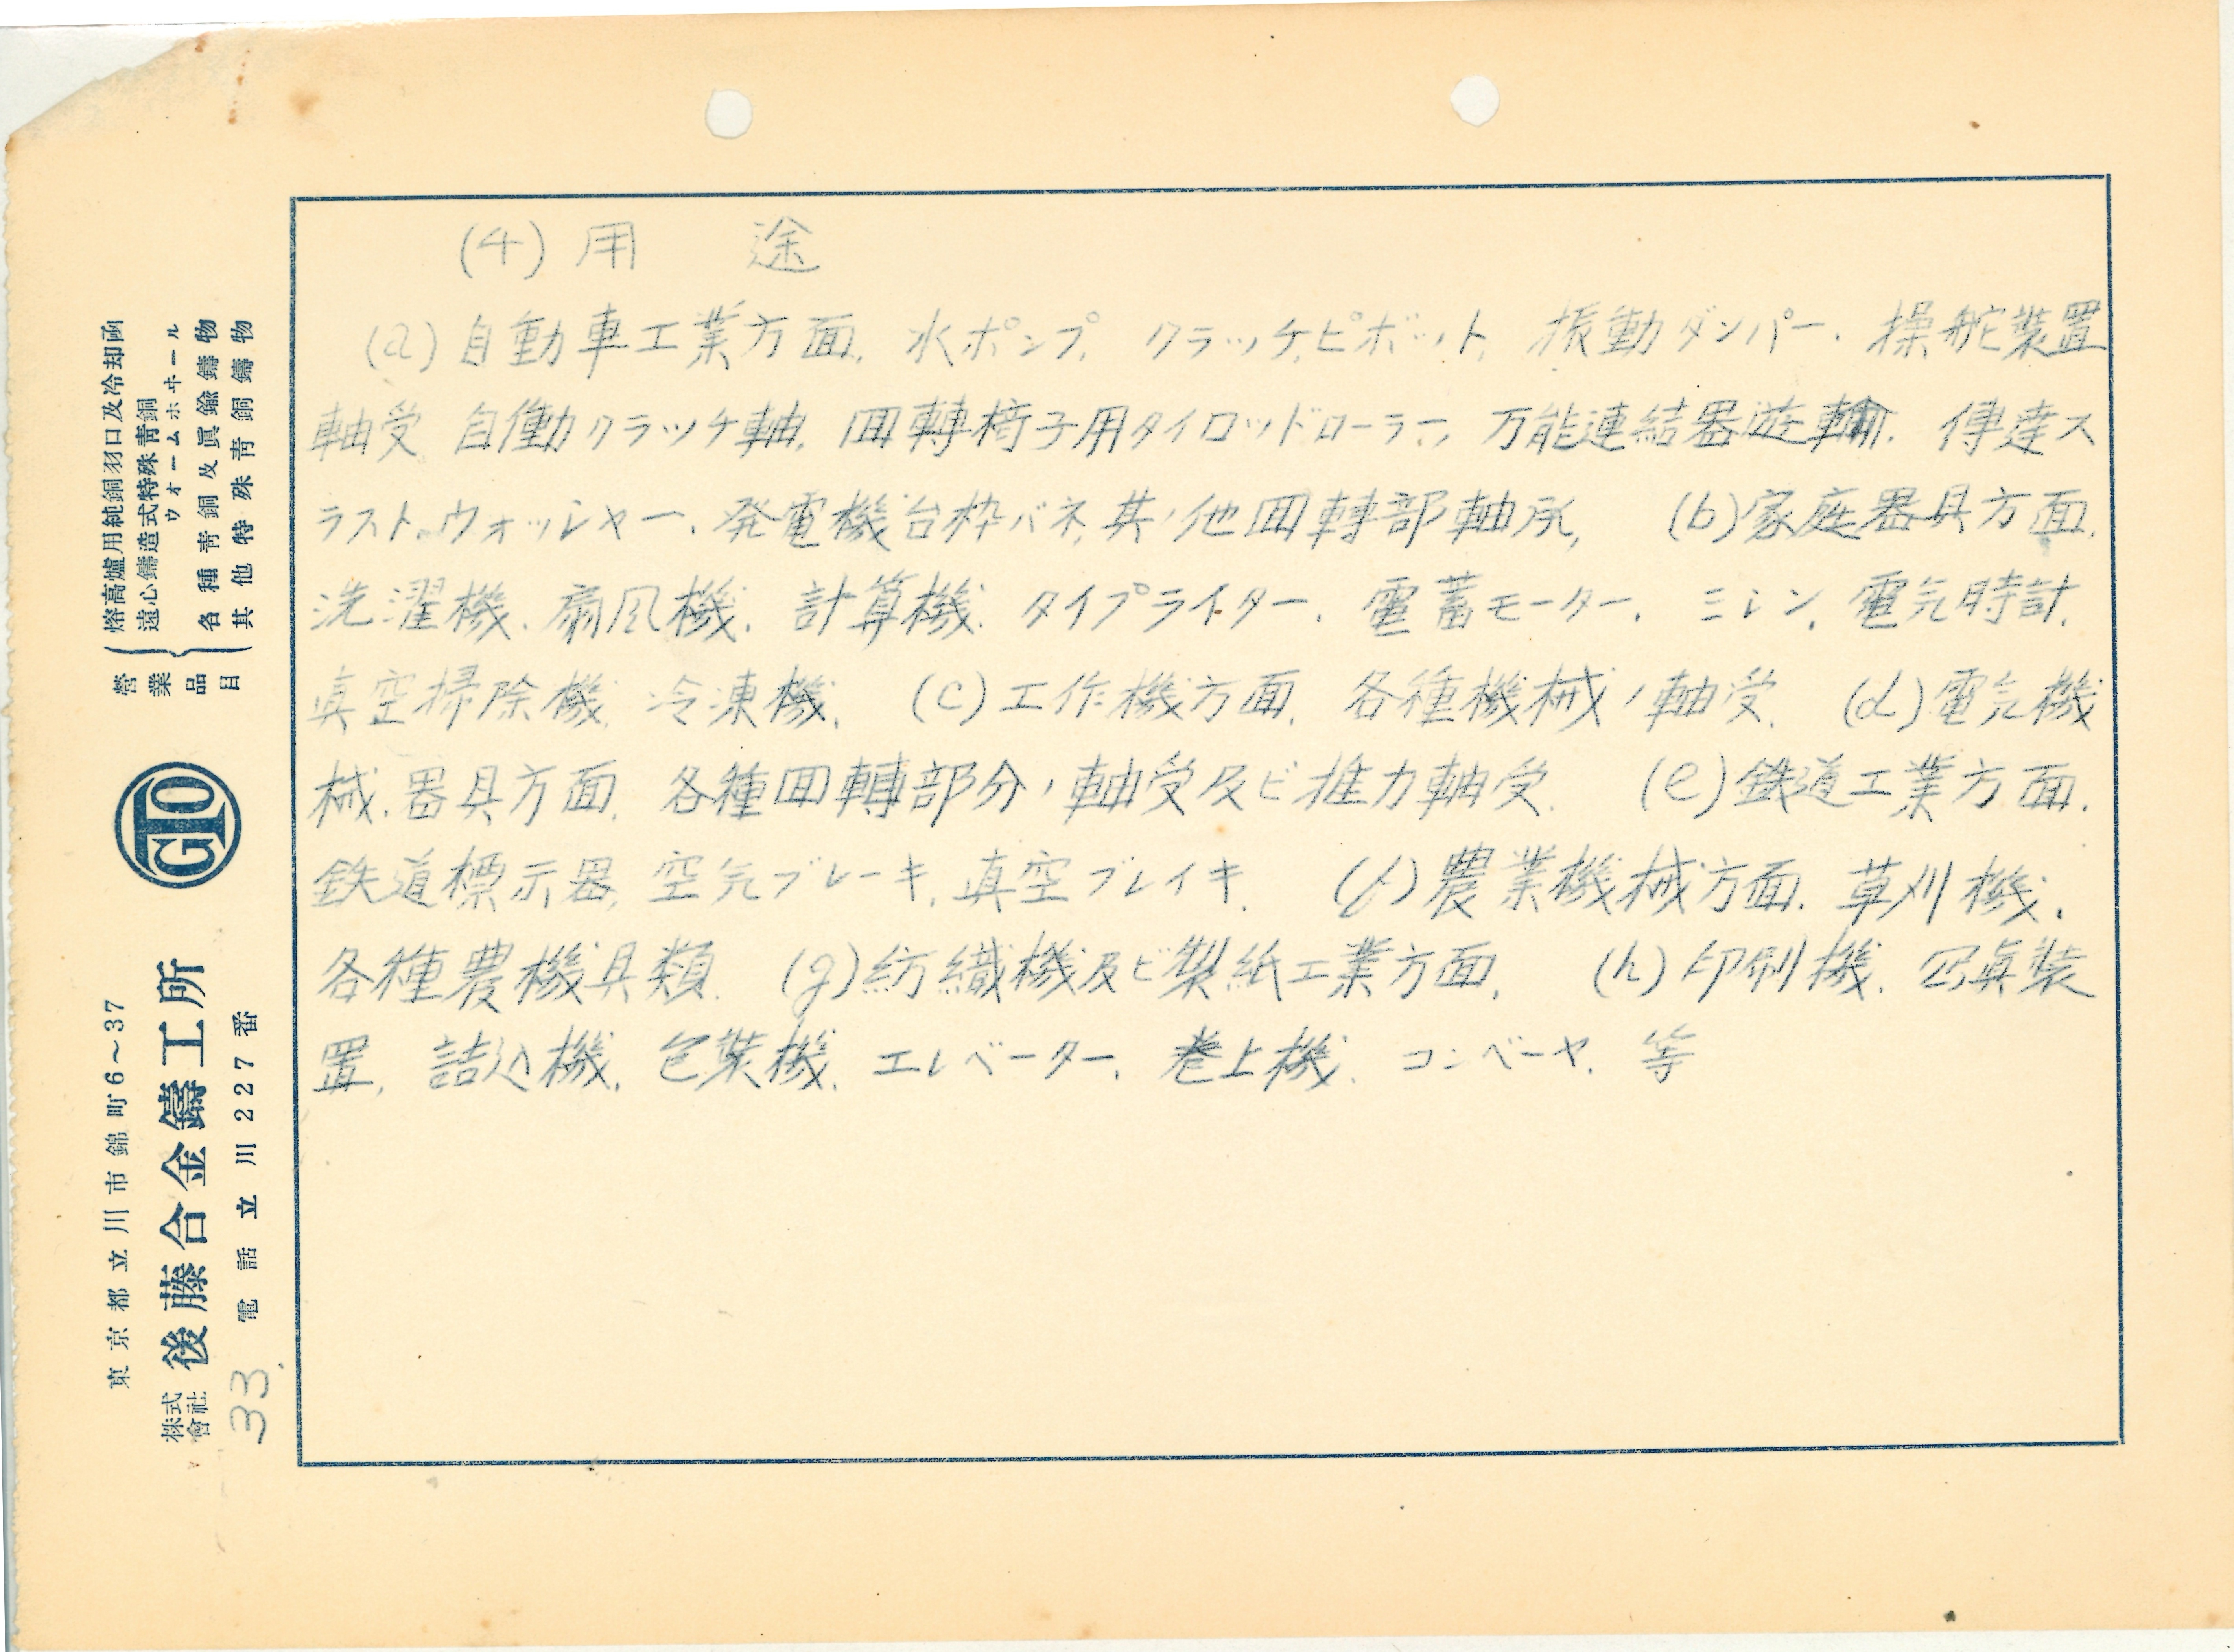 (4) 用　途
(a) 自動車工業方面. 水ポンプ. クラッチピボット. 振動ダンパー. 操舵装置
軸受 自働クラッチ軸. 回轉椅子用タイロッドローラー, 万能連結器遊輪. 傳達ス
ラスト.ウォッシャー. 発電機台枠バネ, 其ノ他回轉部軸承, (b)家庭器具方面.
洗濯機. 扇风機. 計算機. タイプライター. 電蓄モーター. ミシン. 電気時計.
真空掃除機. 冷凍機. (c)工作機方面. 各種機械ノ軸受. (d)電気機
械. 器具方面. 各種回轉部分ノ軸受及ビ推力軸受. (e)鉄道工業方面.
鉄道標示器, 空気ブレーキ, 真空ブレイキ. (f)農業機械方面. 草刈機.
各種農機具類. (g)紡織機及ビ製紙工業方面. (h)印刷機. 写真装
置. 詰込機. 包装機. エレベーター. 巻上機. コンベーヤ. 等
營業品目
熔高爐用純銅羽口及冷却函
遠心鑄造式特殊青銅ウォームホヰール
各種青銅及眞鍮鑄物
其他特殊青銅鑄物
GTO
東京都立川市錦町6～37
株式會社 後藤合金鑄工所
電話立川227番
33.